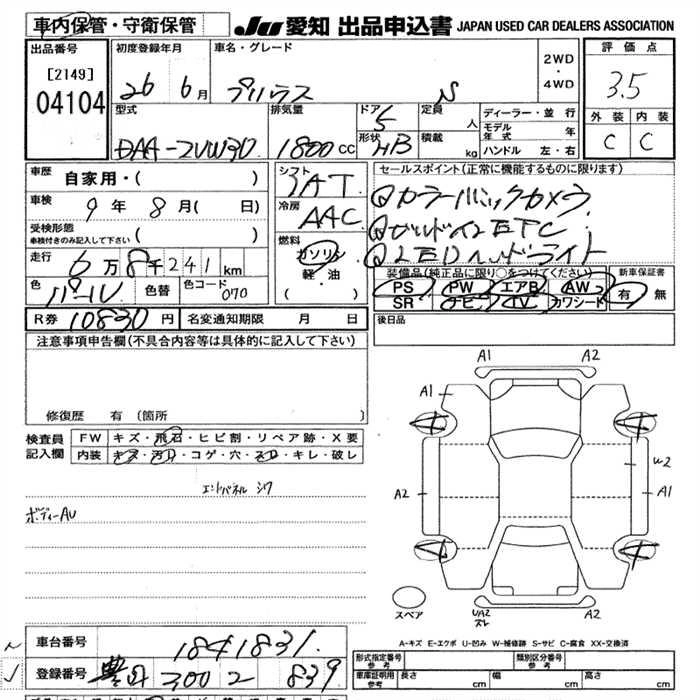 車内保管・守衛保管 JU 愛知 出品申込書 JAPAN USED CAR DEALERS ASSOCIATION
出品番号 [2149] 04104
初度登録年月 26年 6月
車名・グレード プリウス S
2WD ・ 4WD
評価点 3.5
外装 内装
C C
型式 DAA-ZVW30
排気量 1800 CC
ドア 5
形状 HB
定員 人
積載 kg
ディーラー・並行
モデル年式 年
ハンドル 左・右
車歴 自家用・( )
車検 9年 8月( 日)
受検形態 ( )
車検付きのみ記入して下さい
走行 6万8千241km
色 パール 色替 色コード 070
シフト FAT
冷房 AAC
燃料 ガソリン 軽・油
( )
セールスポイント(正常に機能するものに限ります)
①カラーバックカメラ
②ビルトインETC
③LEDヘッドライト
装備品(純正品に限り○をつけてください) 新車保証書
PS PW エアB AW
SR ナビ TV カワシート
有・無
R券 10830円 名変通知期限 月 日
後日品
注意事項申告欄(不具合内容等は具体的に記入して下さい)
修復歴 有 (箇所 )
検査員記入欄
FW キズ・飛石・ヒビ割・リペア跡・X要
内装 キズ・汚れ・コゲ・穴・スレ・キレ・破レ
エンドパネル シワ
ボディーAU
A1 A2
A1
U2
A2 A1
UA2 ズレ
A2
スペア
A-キズ E-エクボ U-凹み W-補修跡 S-サビ C-腐食 XX-交換済
車台番号 1841831
登録番号 豊田 300 る 839
形式指定番号 参考 類別区分番号 参考
車庫証明用 参考 長さ cm 幅 cm 高さ cm